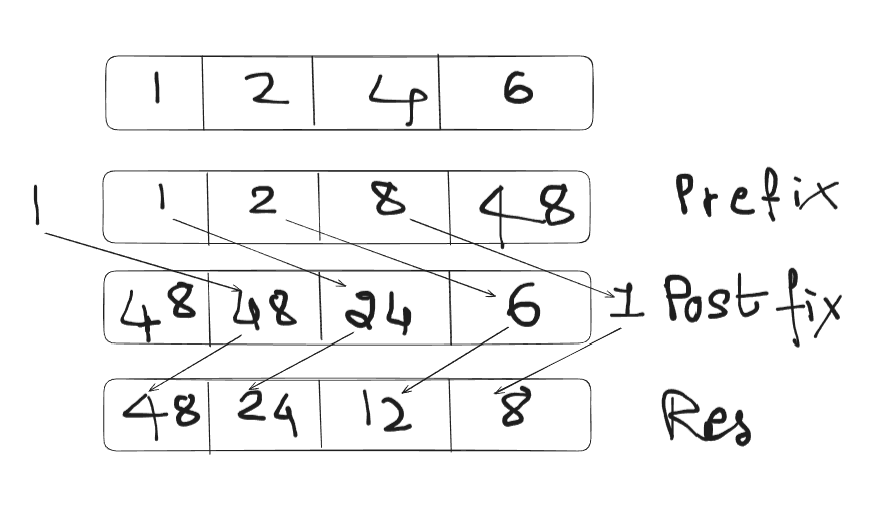 1 2 4 6
1 1 2 8 48 Prefix
48 48 24 6 1 Postfix
48 24 12 8 Res